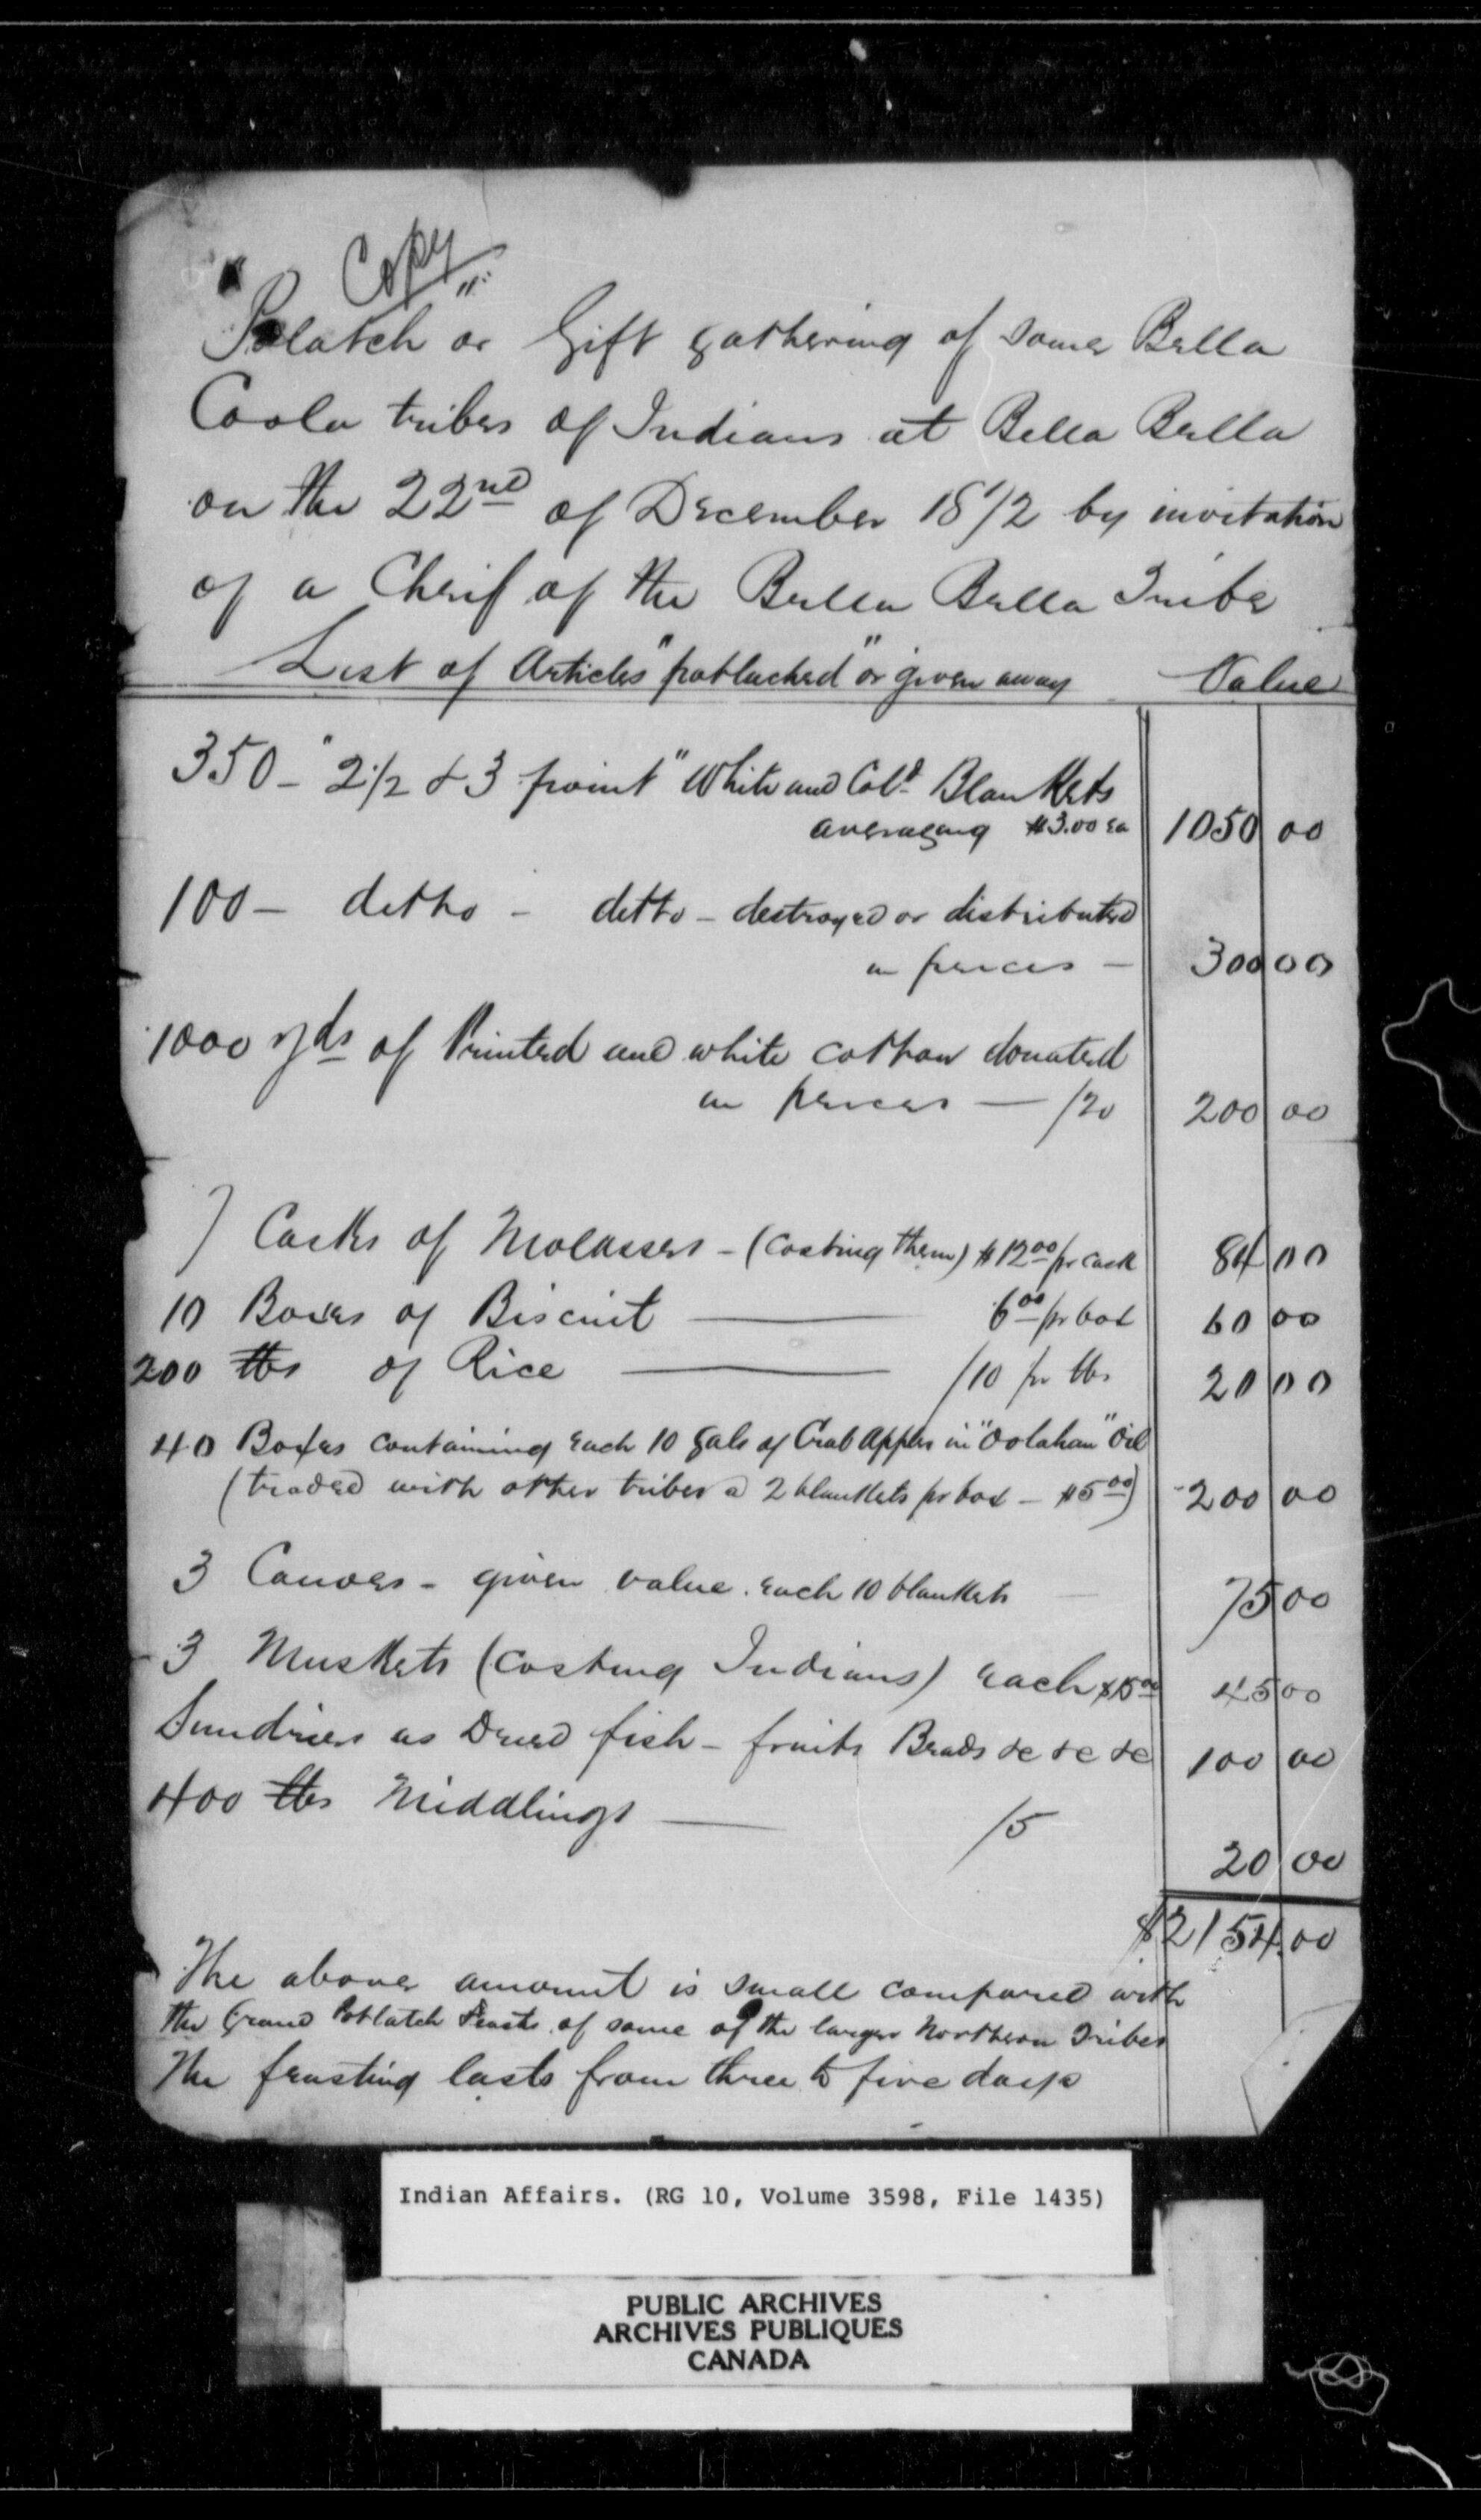 Copy
"Potlatch" or Gift gathering of some Bella
Coola tribes of Indians at Bella Bella
on the 22nd of December 1872 by invitation
of a Cheif of the Bella Bella Tribe
List of Articles "potlached" or given away Value
350 - "2 1/2 & 3 point" White and Cold Blankets
averaging $3.00 ea 1050 00
100 - ditto - ditto - destroyed or distributed
in peices - 300 00
1000 yds of Printed and white cotton donated
in peices — /20 200 00
7 Casks of Molasses - (costing them) $12 00 pr cask 84 00
10 Boxes of Biscuit — 6 00 pr box 60 00
200 lbs of Rice — /10 pr lbs 20 00
40 Boxes containing each 10 gals of Crab Apples in "Oolahan" Oil
(traded with other tribes a 2 blankets pr box - $5 00) 200 00
3 Canoes - given value each 10 blankets 75 00
3 Muskets (costing Indians) each $15 00 45 00
Sundries as Dried fish - fruits Beads &c &c &c 100 00
400 lbs Middlings — /5
20 00
$2154.00
The above amount is small compared with
the Grand Potlatch Feasts of some of the larger Northern Tribes
The feasting lasts from three to five days
Indian Affairs. (RG 10, Volume 3598, File 1435)
PUBLIC ARCHIVES
ARCHIVES PUBLIQUES
CANADA